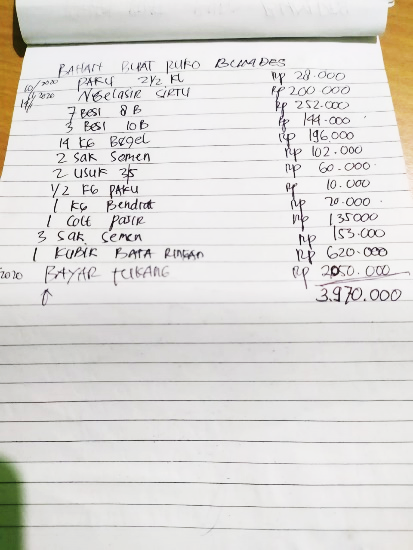 BAHAN BUAT RUKO BUMDES
10/2020 PAKU 2 1/2 KL Rp 28.000
/2020 NGELASIR SIRTU Rp 200 000
7 Besi 8 B Rp 252.000
3 Besi 10B Rp 144.000
14 KG Begel Rp 196000
2 Sak Semen Rp 102.000
2 usuk 3/5 Rp 60.000
1/2 KG PAKU Rp 10.000
1 KG Bendrat Rp 20.000
1 Colt pasir Rp 135000
3 Sak Semen Rp 153.000
1 KUBIK BATA RINGAN Rp 620.000
/2020 BAYAR TUKANG Rp 2050.000
3.970.000